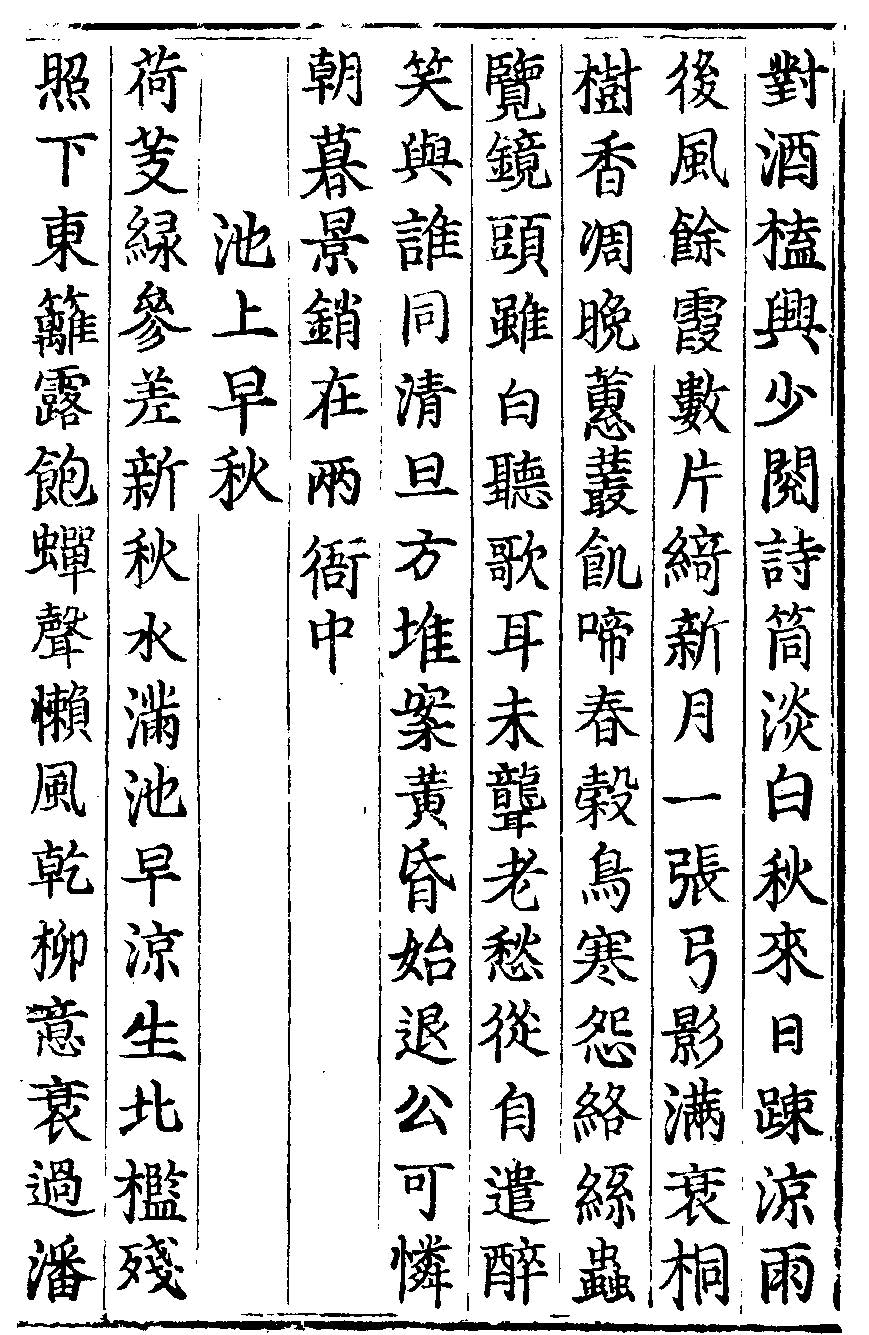 對酒榼興少閱詩筒淡白秋來日踈涼雨
後風餘霞數片綺新月一張弓影滿衰桐
樹香凋晚蕙叢飢啼春穀鳥寒怨絡絲蟲
覽鏡頭雖白聽歌耳未聾老愁從自遣醉
笑與誰同清旦方堆案黃昏始退公可憐
朝暮景銷在兩衙中
池上早秋
荷芰綠參差新秋水滿池早涼生北檻殘
照下東籬露飽蟬聲懶風乾柳意衰過潘